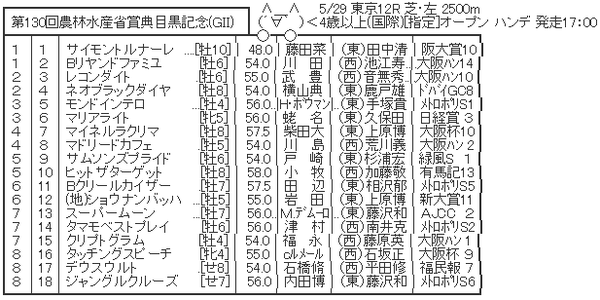 第130回農林水産省賞典目黒記念(GII) ( ´∀`) <4歳以上(国際)[指定]オープン ハンデ 発走17:00
5/29 東京12R 芝・左 2500m
1 1 サイモントルナーレ …[牡10] 48.0 藤田菜 (東)田中清 阪大賞10
1 2 Bリヤンドファミユ [牡6] 54.0 川 田 (西)池江寿‥ 大阪ハン14
2 3 レコンダイト [牡6] 55.0 武 豊 (西)音無秀‥ 大阪ハン10
2 4 ネオブラックダイヤ [牡8] 54.0 横山典 (東)鹿戸雄 ドバイGC8
3 5 モンドインテロ [牡4] 56.0 H・ボウマン (東)手塚貴 メトロポリS1
3 6 マリアライト [牝5] 56.0 蛯 名 (東)久保田 日経賞 3
4 7 マイネルラクリマ [牡8] 57.5 柴田大 (東)上原博 大阪杯10
4 8 マドリードカフェ [牡5] 54.0 川 島 (西)荒川義 大阪ハン 2
5 9 サムソンズプライド [牡6] 54.0 戸 崎 (東)杉浦宏 緑風S 1
5 10 ヒットザターゲット [牡8] 58.0 小 牧 (西)加藤敬 有馬記13
6 11 Bクリールカイザー [牡7] 57.5 田 辺 (東)相沢郁 メトロポリS5
6 12 (地)ショウナンバッハ [牡5] 55.0 岩 田 (東)上原博 新大賞11
7 13 スーパームーン [牡7] 56.0 M.デムーロ (東)藤沢和 AJCC 2
7 14 タマモベストプレイ [牡6] 56.0 津 村 (西)南井克 メトロポリS2
7 15 クリプトグラム [牡4] 54.0 福 永 (西)藤原英 大阪ハン 1
8 16 タッチングスピーチ [牝4] 55.0 cルメール (西)石坂正 大阪杯 9
8 17 デウスウルト [せ8] 54.0 石橋脩 (西)平田修 福民報 7
8 18 ジャングルクルーズ [せ7] 56.0 内田博 (東)藤沢和 メトロポリS6